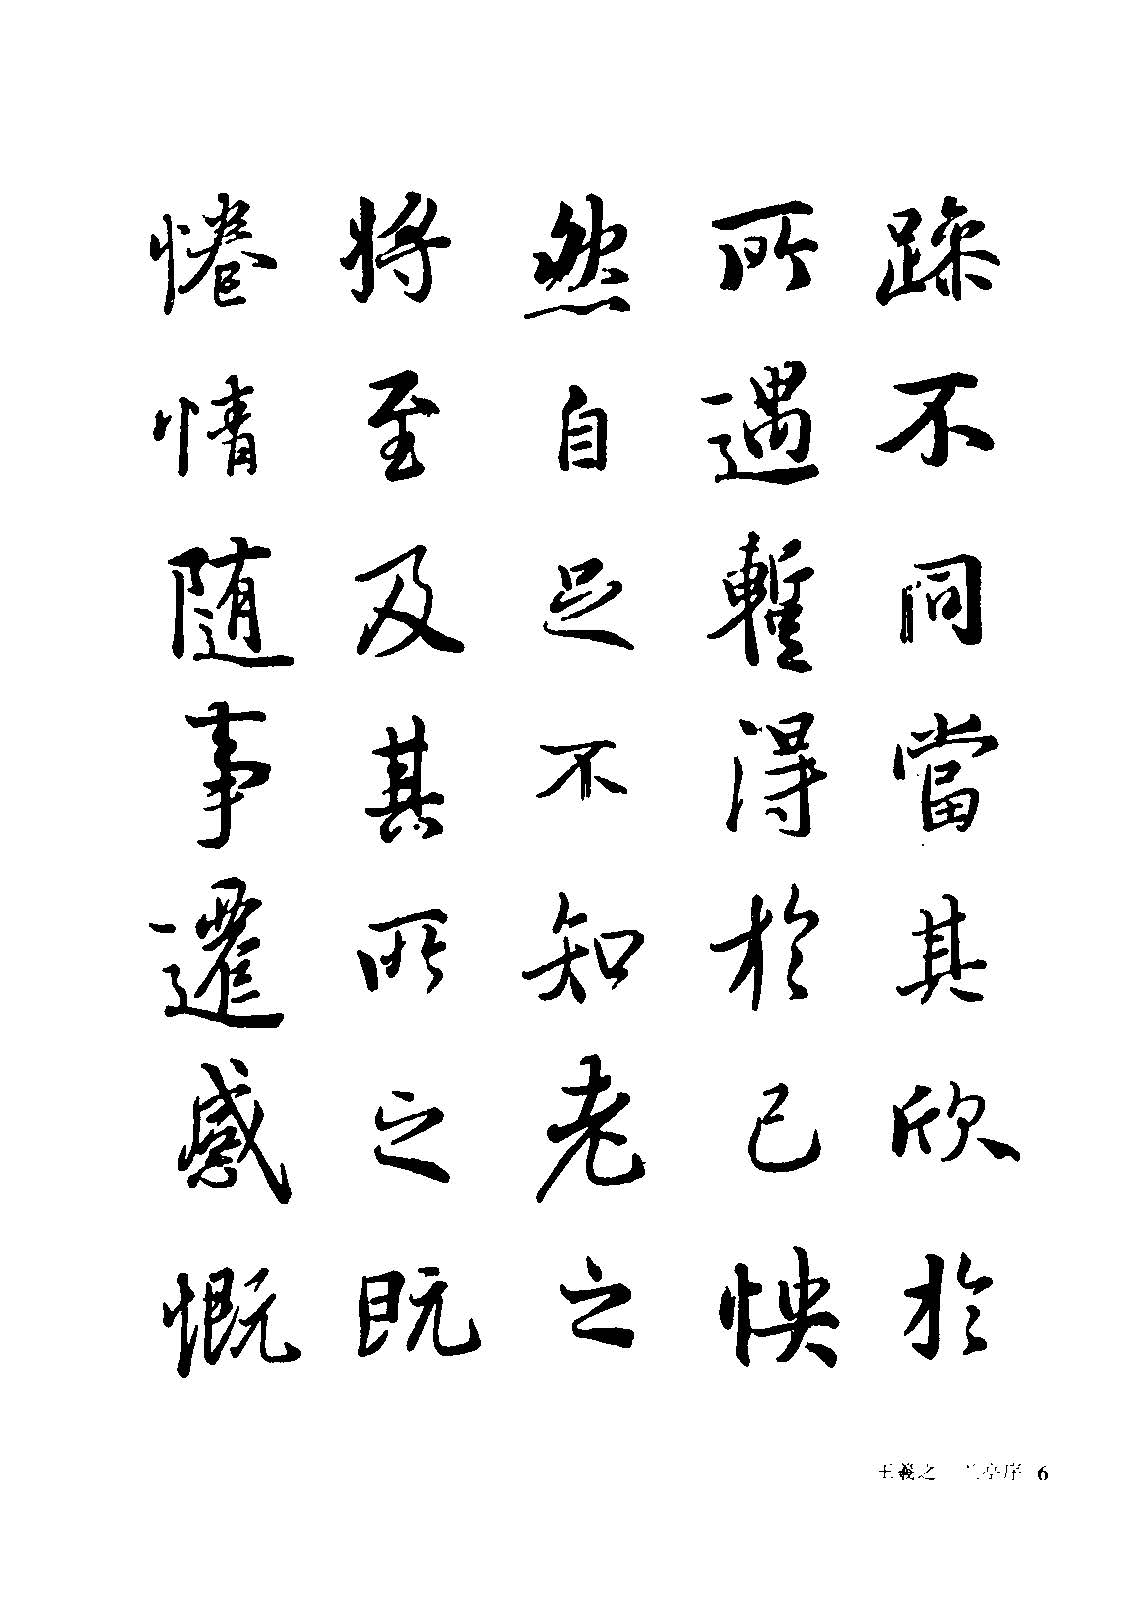 躁不同當其欣於
所遇暫得於己怏
然自足不知老之
將至及其所之既
惓情随事遷感慨
王羲之 兰亭序 6